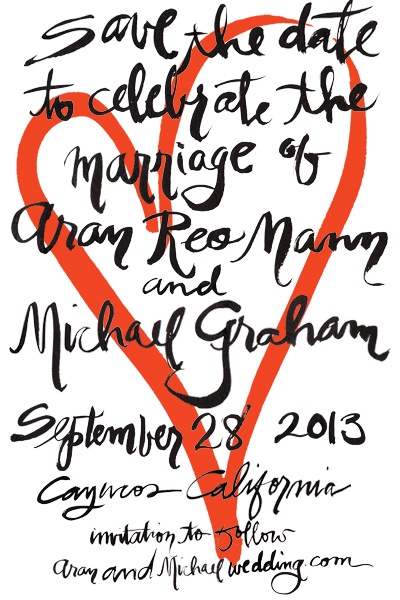 Save the date
to celebrate the
marriage of
Aran Reo Mann
and
Michael Graham
September 28 2013
Cayucos California
invitation to follow
aran and Michael wedding.com